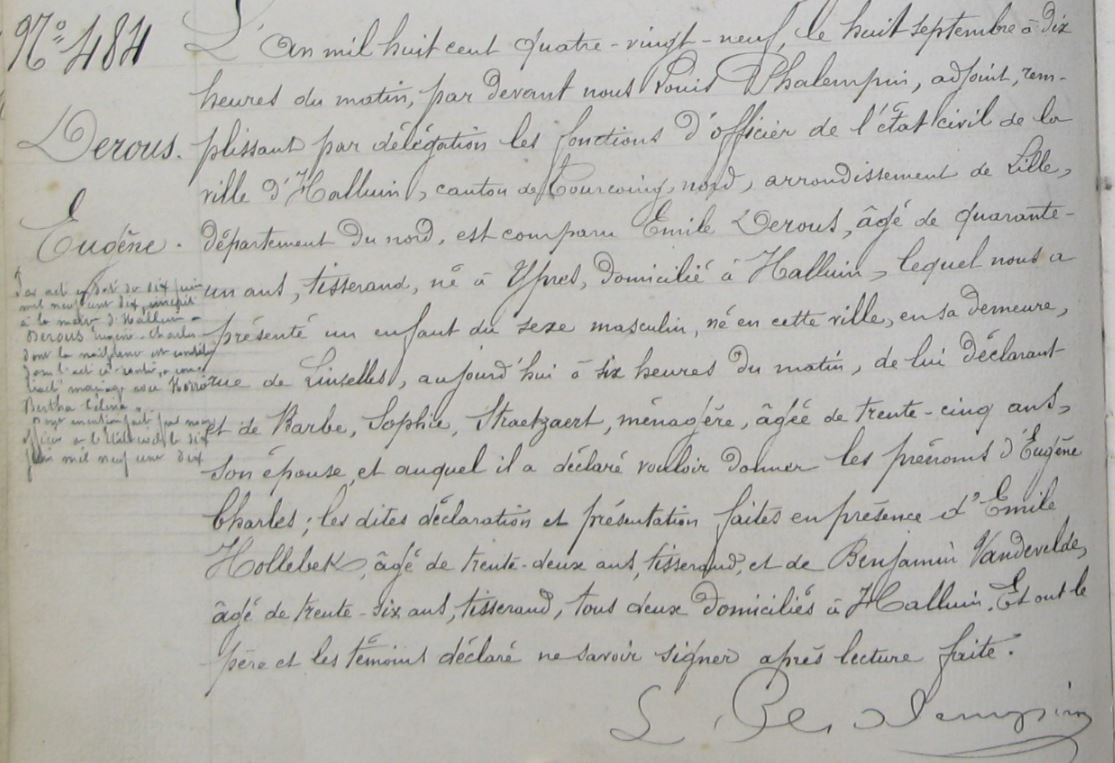 N° 484
Derous.
Eugène.
Par acte en date du six juin
mil neuf cent dix, inscrit
à la mairie d'Halluin
Derous Eugène-Charles
dont la naissance est constatée
dans l'acte ci-contre, a contracté
mariage avec
Bertha Célina.
Pour mention fait par nous
officier de l'état civil le six
juin mil neuf cent dix
L'an mil huit cent quatre-vingt-neuf, le huit septembre à dix
heures du matin, par devant nous Louis Phalempin, adjoint, rem-
plissant par délégation les fonctions d'officier de l'état civil de la
ville d'Halluin, canton de Tourcoing, nord, arrondissement de Lille,
département du nord, est comparu Emile Derous, âgé de quarante-
un ans, tisserand, né à Ypres, domicilié à Halluin, lequel nous a
présenté un enfant du sexe masculin, né en cette ville, en sa demeure,
rue de Linselles, aujourd'hui à six heures du matin, de lui déclarant
et de Barbe, Sophie, Straetzaert, ménagère, âgée de trente-cinq ans,
son épouse, et auquel il a déclaré vouloir donner les prénoms d'Eugène
Charles; les dites déclaration et présentation faites en présence d'Emile
Hollebek, âgé de trente-deux ans, tisserand, et de Benjamin Vandevelde,
âgé de trente-six ans, tisserand, tous deux domiciliés à Halluin. Et ont le
père et les témoins déclaré ne savoir signer après lecture faite.
L. Phalempin